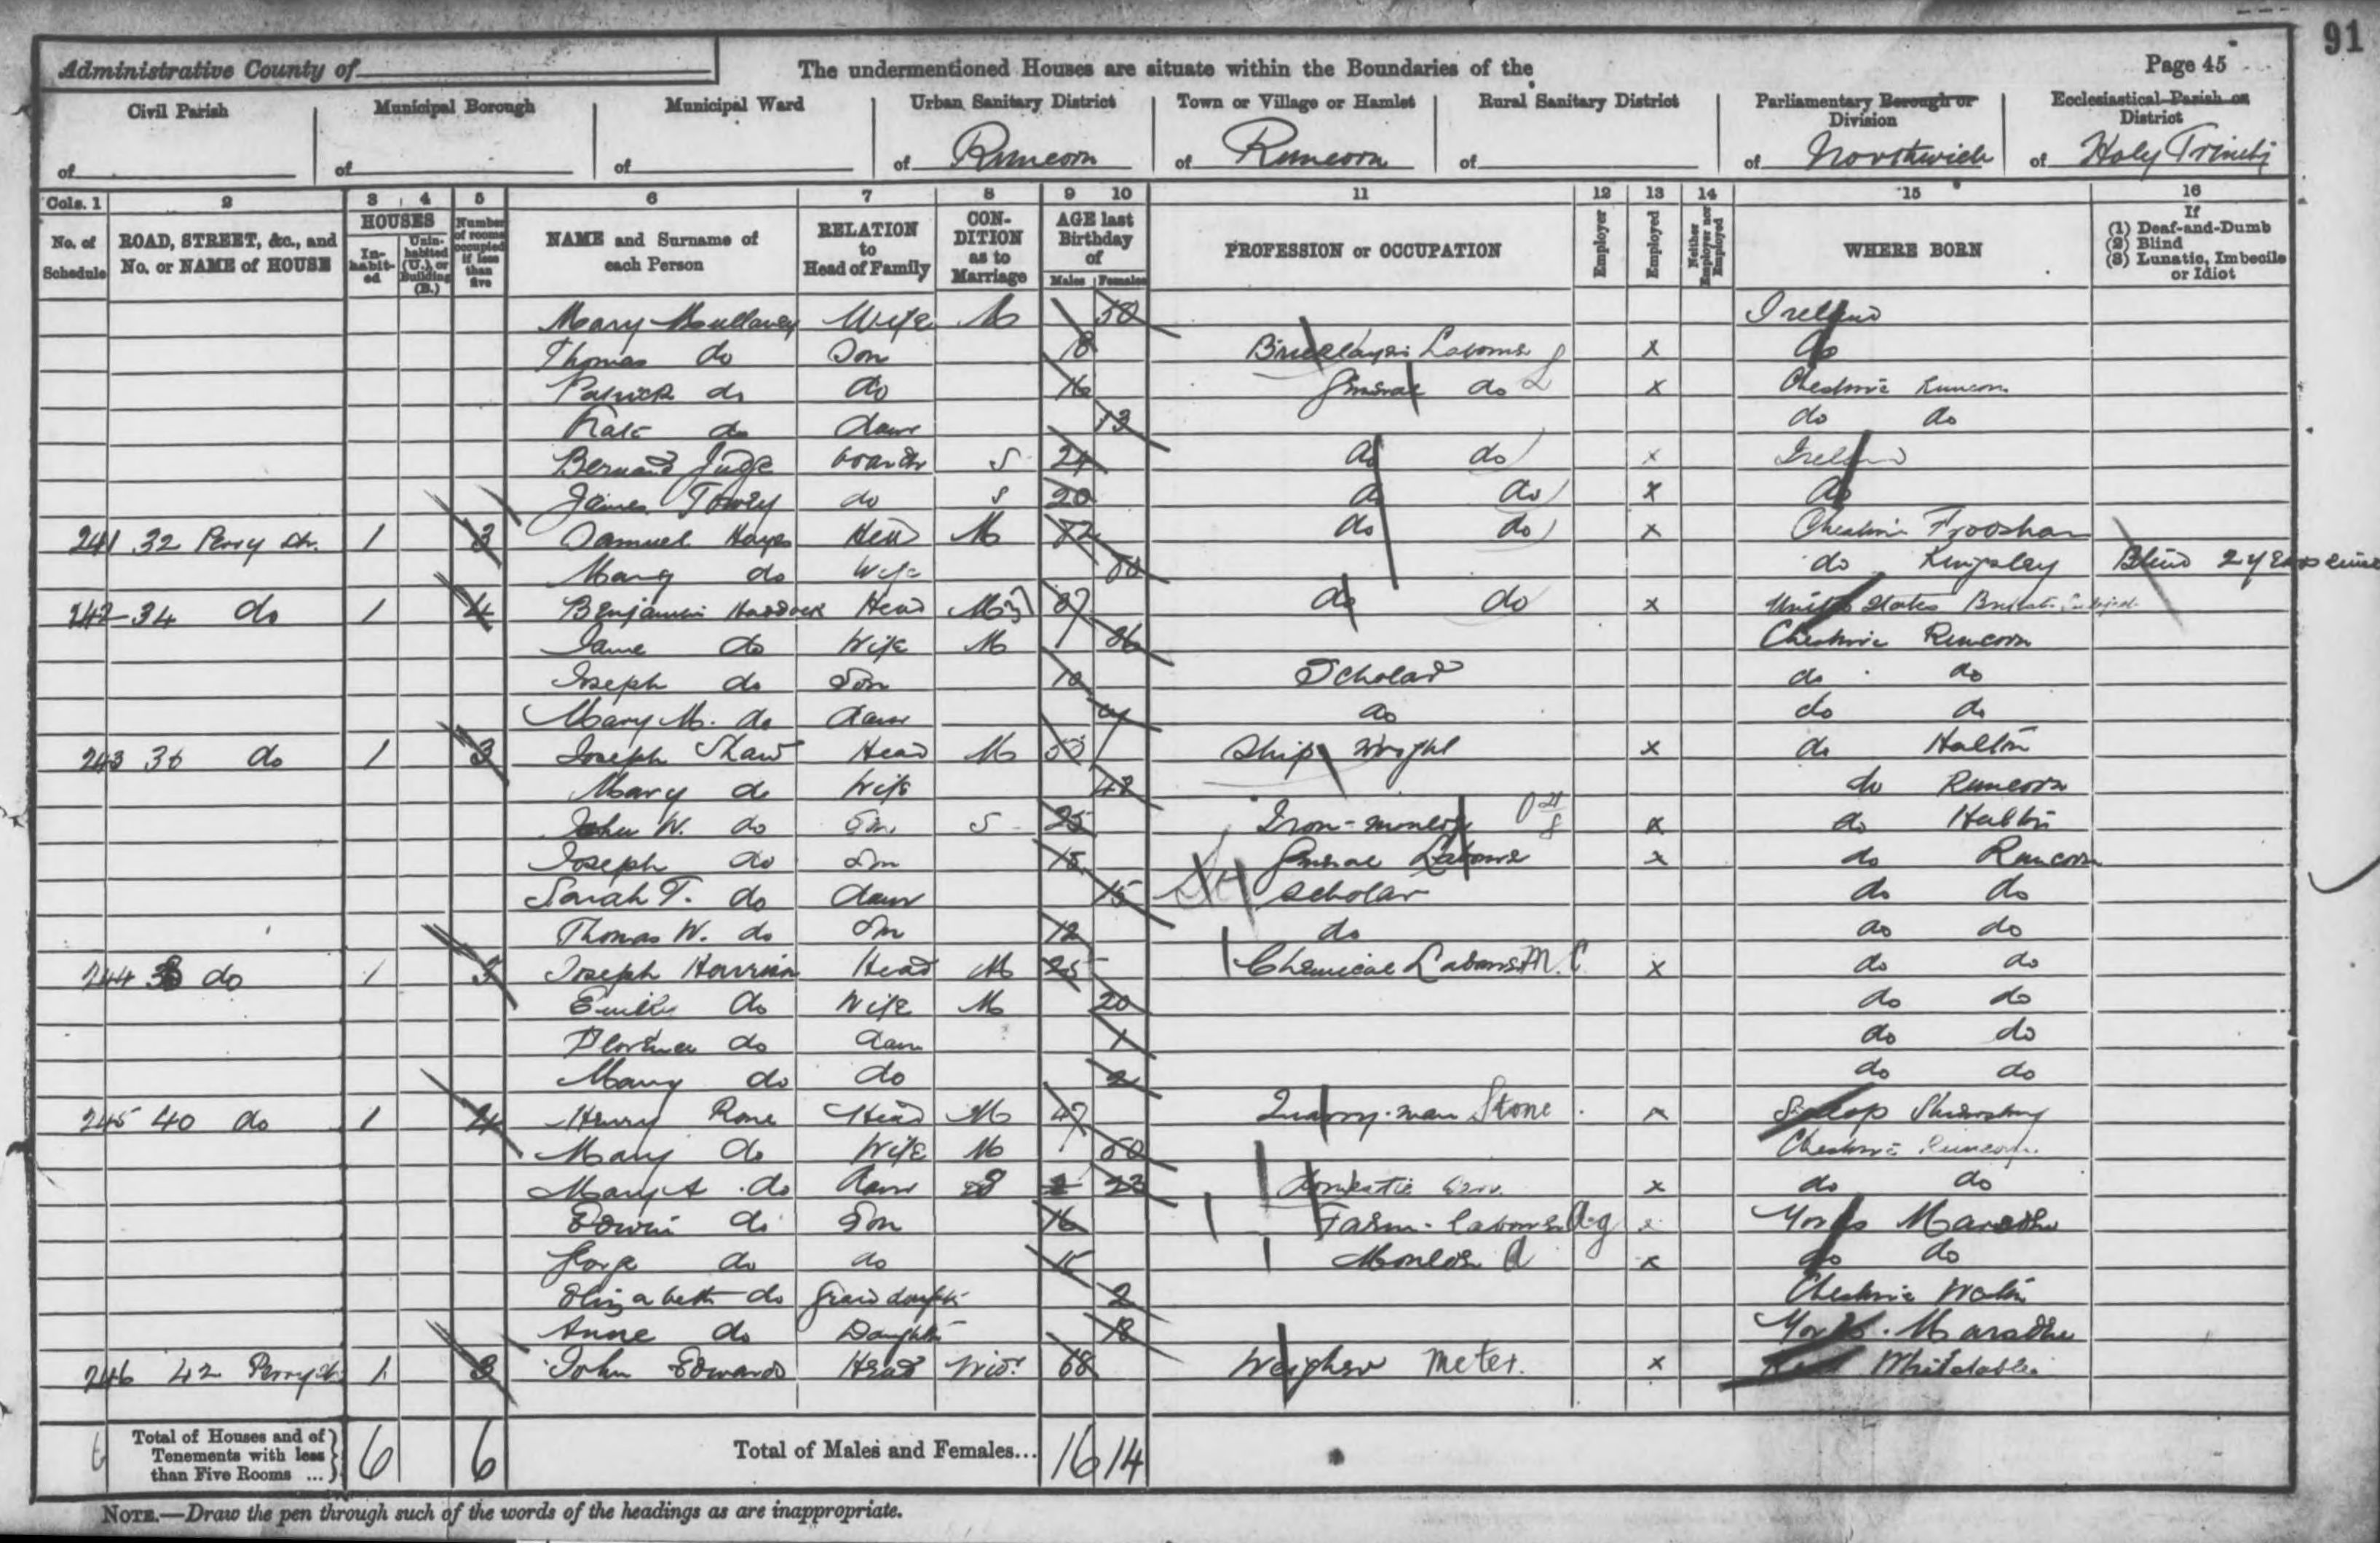 91
Administrative County of
The undermentioned Houses are situate within the Boundaries of the
Page 45
Civil Parish of
Municipal Borough of
Municipal Ward of
Urban Sanitary District of Runcorn
Town or Village or Hamlet of Runcorn
Rural Sanitary District of
Parliamentary Borough or Division of Northwich
Ecclesiastical Parish or District of Holy Trinity
Cols. 1 2 3 4 5 6 7 8 9 10 11 12 13 14 15 16
No. of Schedule
ROAD, STREET, &c., and No. or NAME of HOUSE
HOUSES
In-habit-ed
Unin-habited (U.), or Building (B.)
Number of rooms occupied if less than five
NAME and Surname of each Person
RELATION to Head of Family
CON-DITION as to Marriage
AGE last Birthday of
Males Females
PROFESSION or OCCUPATION
Employer
Employed
Neither Employer nor Employed
WHERE BORN
If (1) Deaf-and-Dumb (2) Blind (3) Lunatic, Imbecile or Idiot
Mary Mullaney Wife M 50 Ireland
Thomas do Son 18 Bricklayers Labourer x do
Patrick do do 16 General do x Cheshire Runcorn
Kate do daur 13 do do
Bernard Judge boarder S 24 do do x Ireland
James Towey do S 20 do do x do
241 32 Percy St. 1 3 Samuel Hayes Head M do do x Cheshire Frodsham
Mary do Wife do Kingsley Blind 2 years since
242 34 do 1 4 Benjamin Haddock Head M 37 do do x United States British Subject
Jane do Wife M 36 Cheshire Runcorn
Joseph do Son 10 Scholar do do
Mary M. do daur do do do
243 36 do 1 3 Joseph Shaw Head M Ship wright x do Halton
Mary do Wife 48 do Runcorn
John W. do Son S 25 Iron-moulder x do Halton
Joseph do Son General Labourer x do Runcorn
Sarah T. do daur 15 Scholar do do
Thomas W. do Son 12 do do do
244 38 do 1 3 Joseph Harrison Head M 25 Chemical Labourer M.C x do do
Emily do Wife M 20 do do
Florence do daur 1 do do
Mary do do 2 do do
245 40 do 1 4 Henry Rone Head M 47 Quarry-man Stone x Salop Shrewsbury
Mary do Wife M 50 Cheshire Runcorn
Mary A do daur S 23 Domestic Serv. x do do
Edwin do Son 16 Farm-labourer Ag x Yorks
George do do 15 Moulder x do do
Elizabeth do Grand daughter 2 Cheshire
Anne do Daughter 18 Yorks.
246 42 Percy St 1 3 John Edwards Head Widr 68 Weigher Meter. x Kent Whitstable
Total of Houses and of Tenements with less than Five Rooms ... 6 6
Total of Males and Females... 16 14
NOTE.—Draw the pen through such of the words of the headings as are inappropriate.